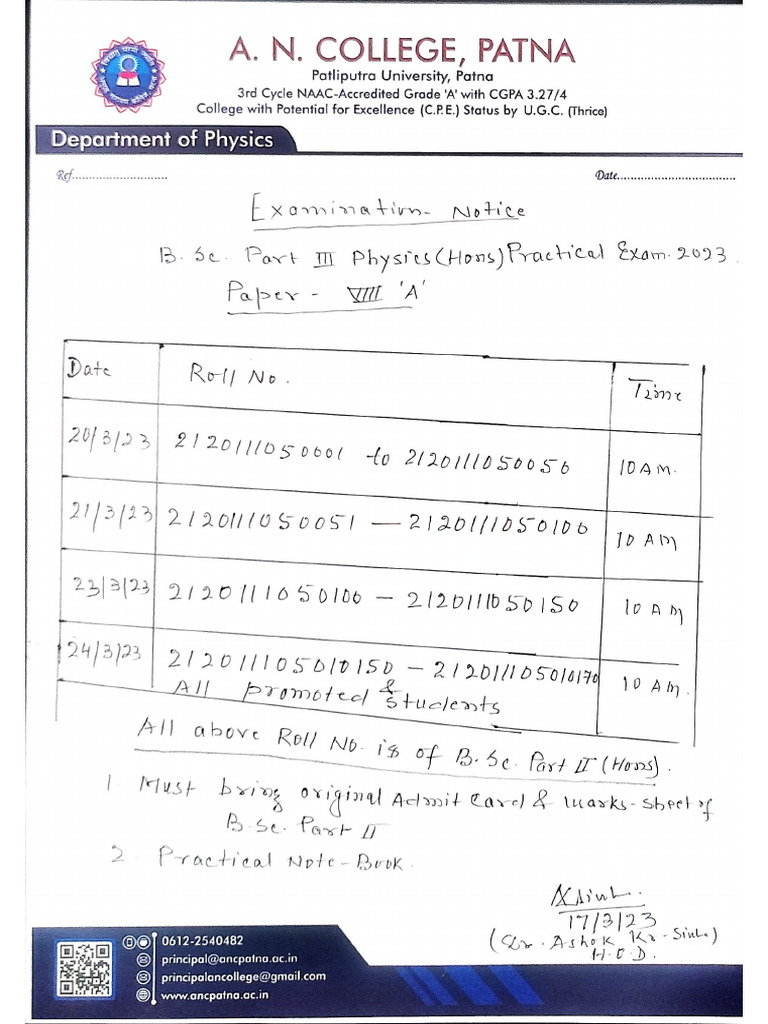 A. N. COLLEGE, PATNA
Patliputra University, Patna
3rd Cycle NAAC-Accredited Grade 'A' with CGPA 3.27/4
College with Potential for Excellence (C.P.E.) Status by U.G.C. (Thrice)
Department of Physics
Ref............................ Date..................................
Examination - Notice
B. Sc. Part III Physics (Hons) Practical Exam. 2023.
Paper - VIII 'A'
Date Roll No. Time
20/3/23 2120111050001 to 2120111050050 10 AM.
21/3/23 2120111050051 — 2120111050100 10 AM
23/3/23 2120111050100 - 2120111050150 10 AM
24/3/23 212011105010150 - 212011105010170 10 AM.
& All promoted students
All above Roll No. is of B. Sc. Part II (Hons).
1. Must bring original Admit Card & Marks-sheet of
B. Sc. Part II
2. Practical Note-Book.
17/3/23
(Dr. Ashok Kr. Sinha)
H.O.D.
0612-2540482
principal@ancpatna.ac.in
principalancollege@gmail.com
www.ancpatna.ac.in